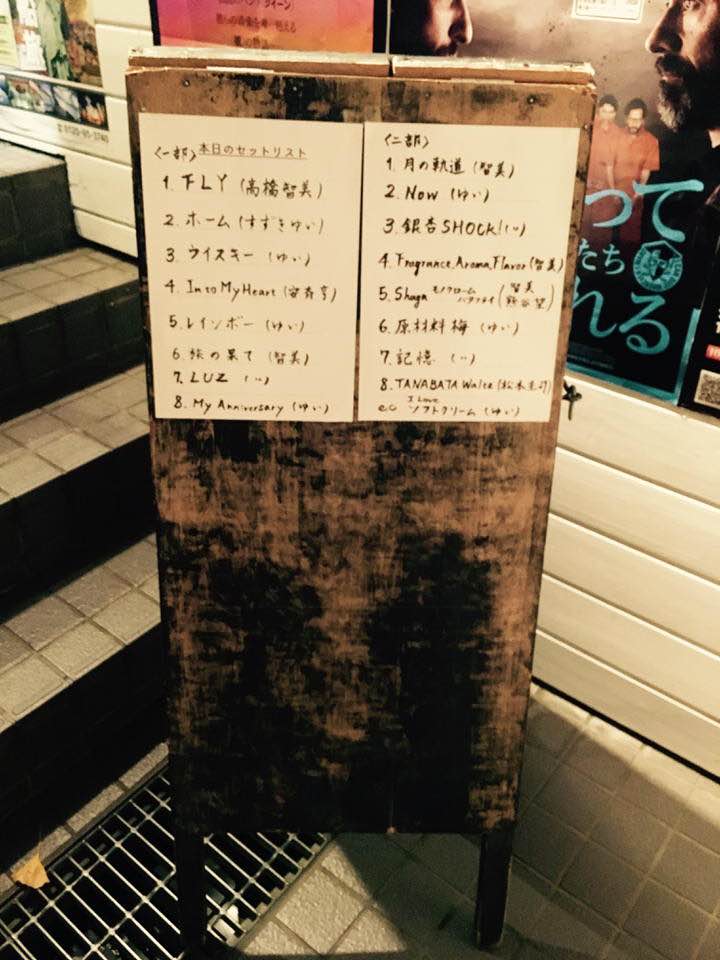 〈一部〉本日のセットリスト
1. FLY (高橋智美)
2. ホーム (すずきゆい)
3. ウイスキー (ゆい)
4. In to My Heart (安斉亨)
5. レインボー (ゆい)
6. 旅の果て (智美)
7. LUZ (〃)
8. My Anniversary (ゆい)
〈二部〉
1. 月の軌道 (智美)
2. Now (ゆい)
3. 銀杏SHOCK! (〃)
4. Fragrance, Aroma, Flavor (智美)
5. Shuga モノクローム バタフライ (智美 熊谷望)
6. 原材料梅 (ゆい)
7. 記憶 (〃)
8. TANABATA Waltz (松本圭司)
e.c I Love ソフトクリーム (ゆい)
って
たち
れる
0120-95-3740